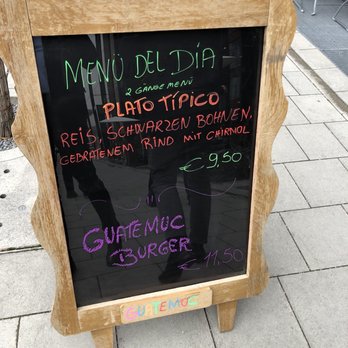 MENÜ DEL DÍA
2 GÄNGE MENÜ
PLATO TÍPICO
REIS, SCHWARZEN BOHNEN,
GEBRATENEM RIND MIT CHIRMOL
€ 9,50
GUATEMUC
BURGER
€ 11,50
GUATEMUC